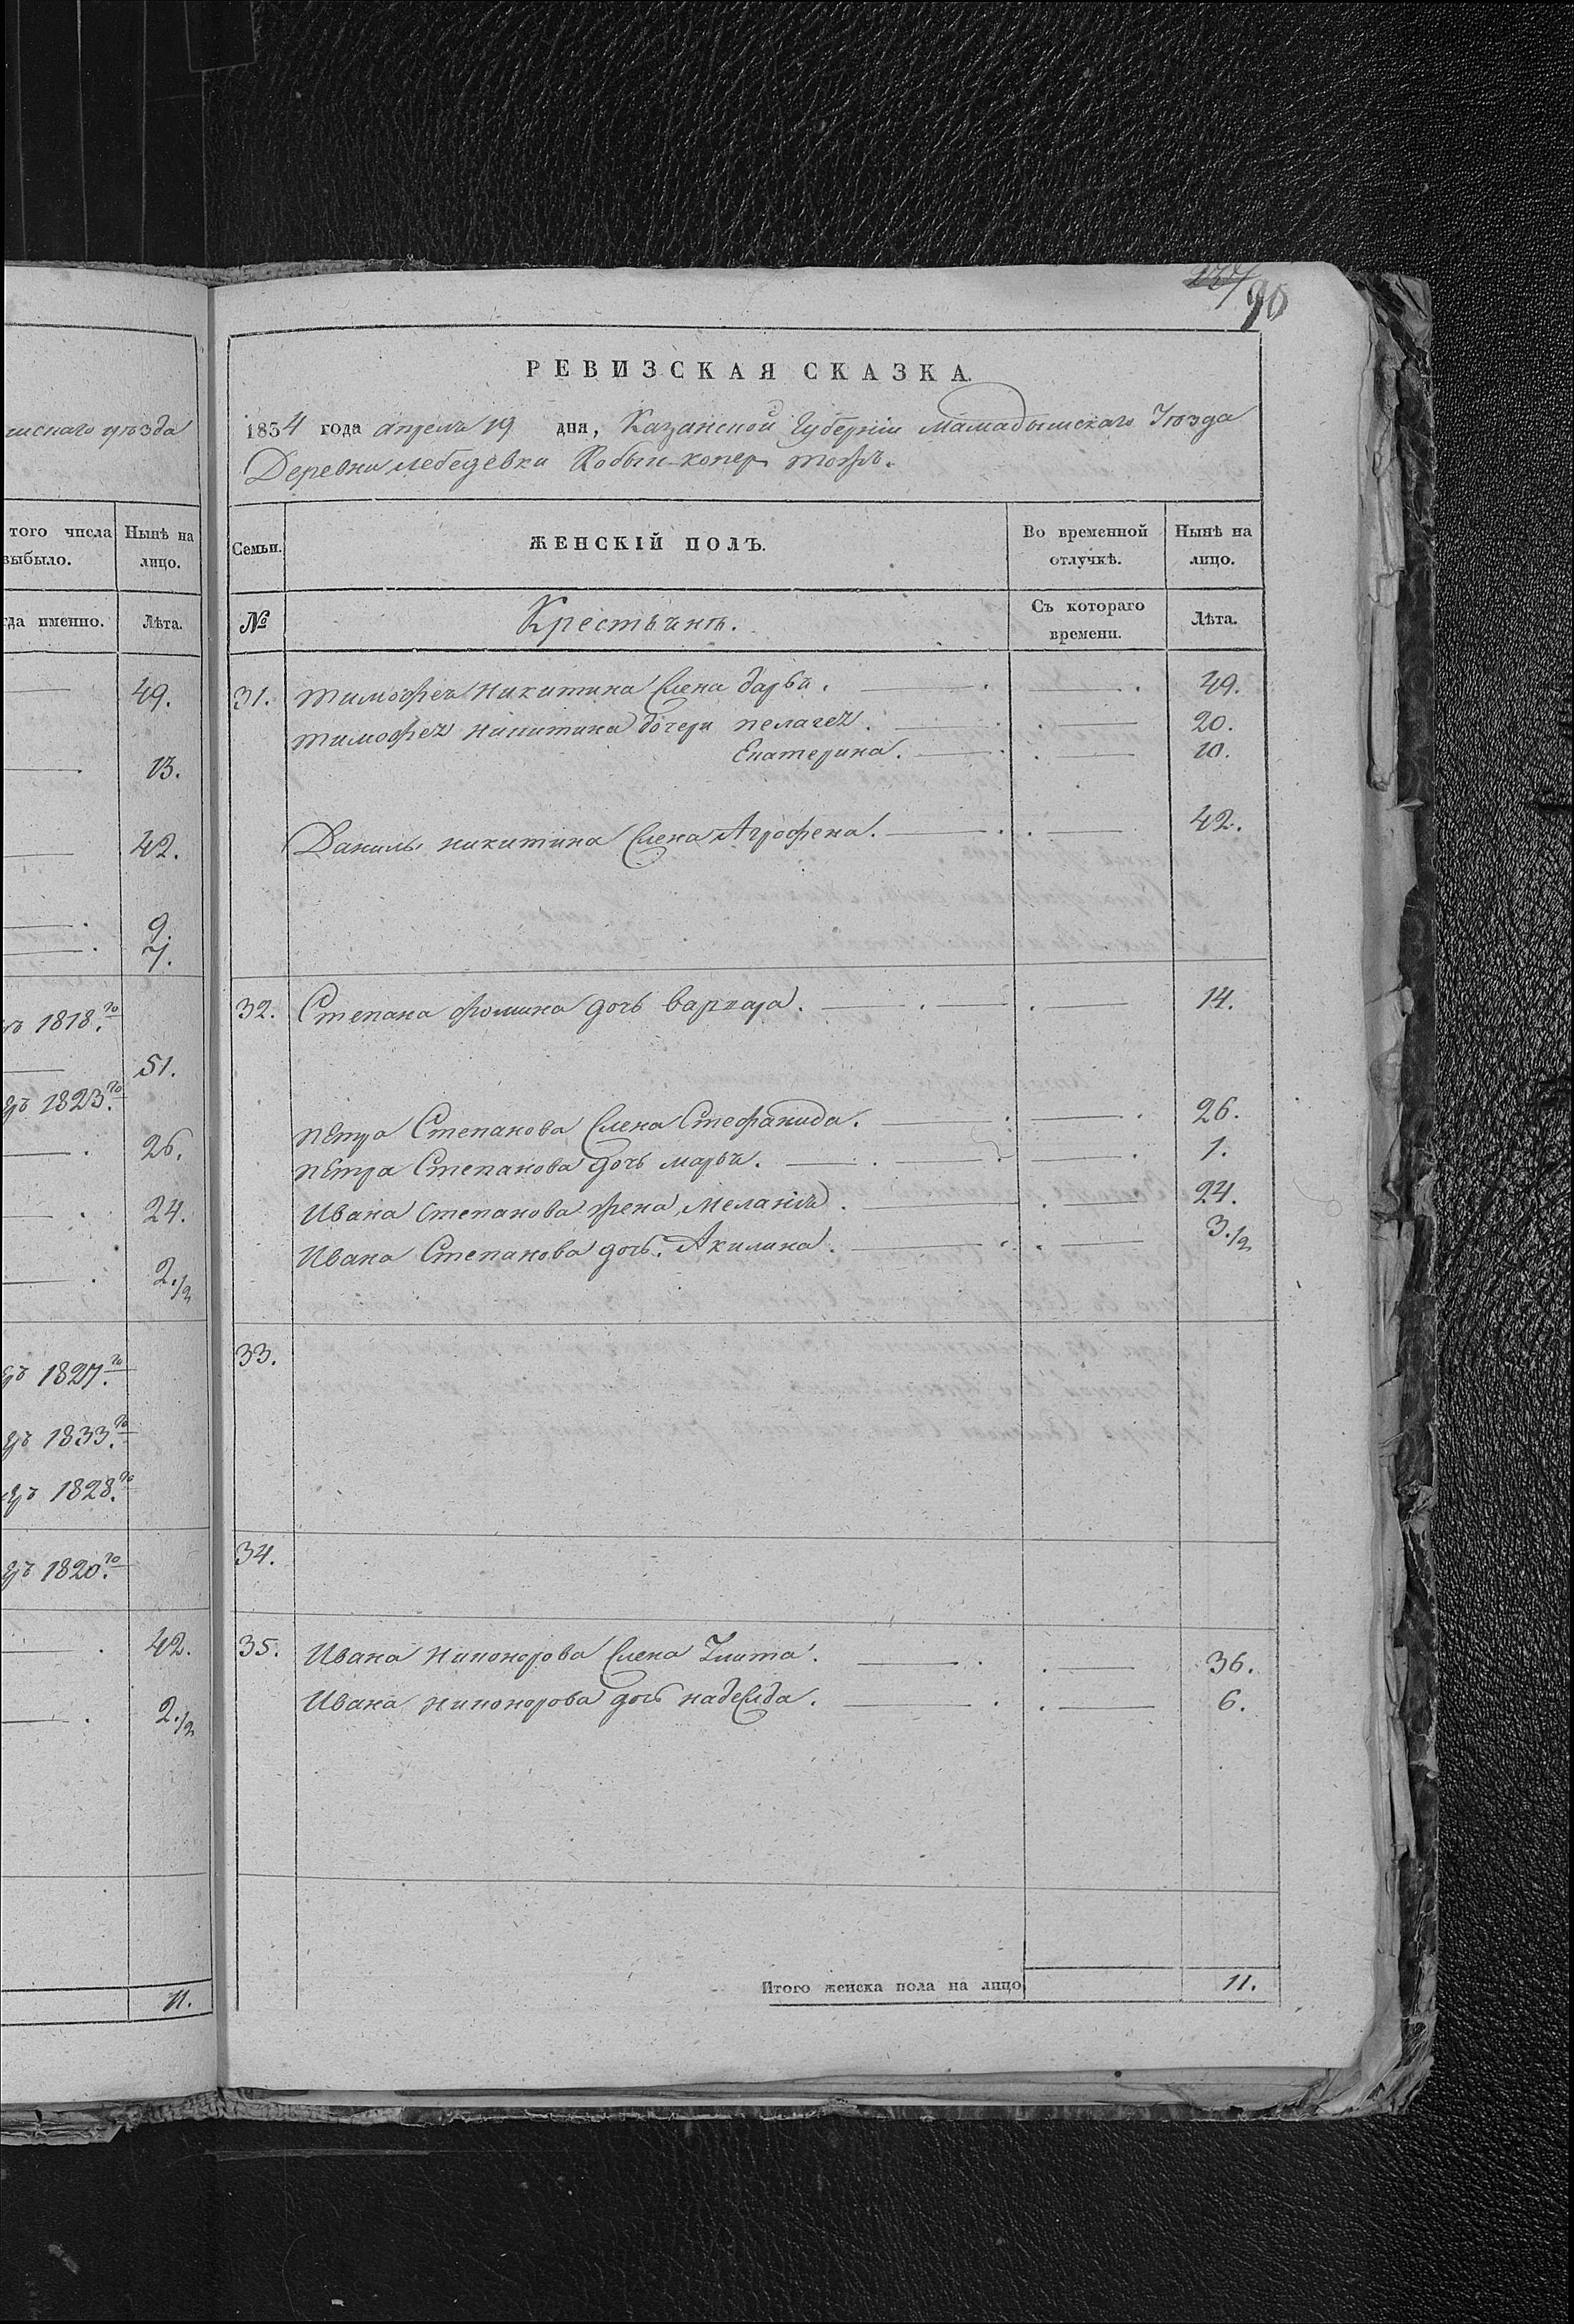 90
шскаго уѣзда
того числа выбыло.
Нынѣ на лицо.
гда именно.
Лѣта.
49.
13.
42.
9.
7.
1818.го
51.
1823.го
26.
24.
2.1/2
1827.го
1833.го
1828.го
1820.го
42.
2.1/2
11.
РЕВИЗСКАЯ СКАЗКА.
1834 года апреля 19 дня, Казанской Губерніи Мамадышскаго Уѣзда
Деревни лебедевки Кобык-копер тожъ.
Семьи. ЖЕНСКІЙ ПОЛЪ. Во временной отлучкѣ. Нынѣ на лицо.
№ Крестьянъ. Съ котораго времени. Лѣта.
31. тимофея никитина жена дарья. 49.
тимофея никитина дочери пелагея. 20.
Екатерина. 10.
Данилы никитина жена Агрофена. 42.
32. Степана фомина дочь варвара. 14.
петра Степанова жена Стефанида. 26.
петра Степанова дочь марья. 1.
Ивана степанова жена Меланія. 24.
Ивана Степанова дочь Акилина. 3.1/2
33.
34.
35. Ивана никонорова жена Улита. 36.
Ивана никонорова дочь надежда. 6.
Итого женска пола на лицо 11.